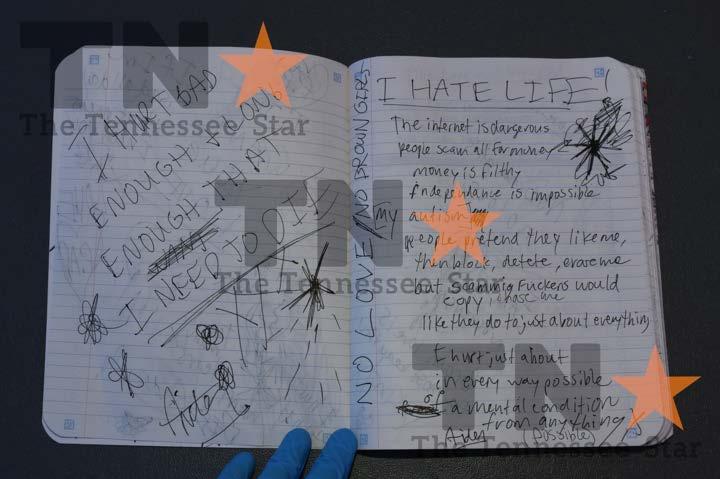 I HURT BAD
ENOUGH & LONG
ENOUGH THAT
I NEED TO DIE
Aiden
NO LOVE NO BROWN GIRLS
I HATE LIFE!
The internet is dangerous
people scam all for money
money is filthy
independance is impossible
my autism
People pretend they like me,
then block, delete, erase me
but scamming fuckers would
copy, chase me
like they do to just about everything
I hurt just about
in every way possible
of a mental condition
from anything
Aiden (possible)
TN
The Tennessee Star
TN
The Tennessee Star
TN
The Tennessee Star